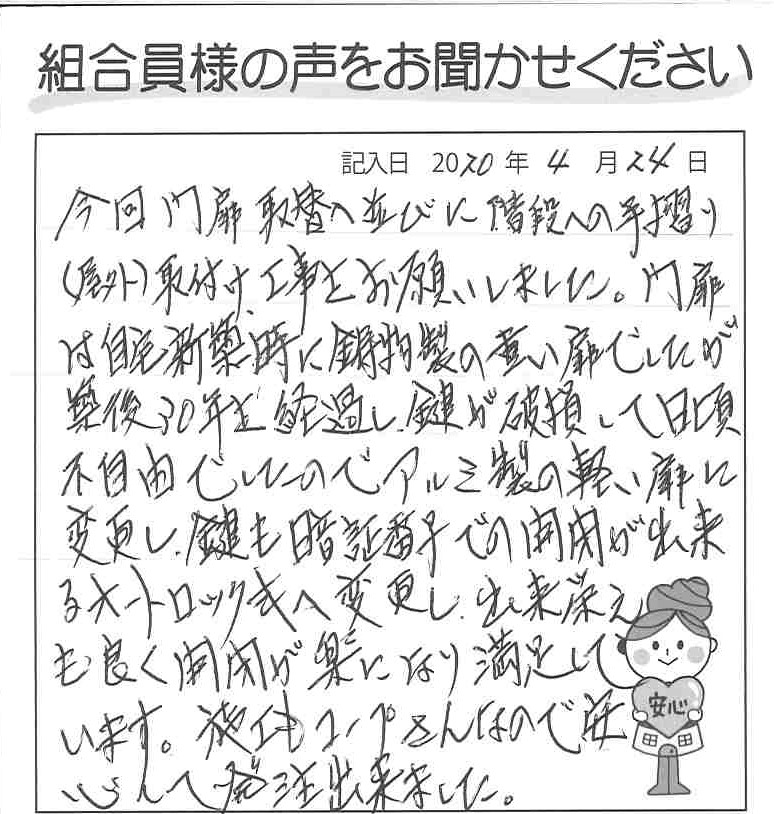 組合員様の声をお聞かせください
記入日 2020年 4月24日
今回門扉取替へ並びに階段への手摺り
(屋外)取付け工事をお願いしました。門扉
は自宅新築時に鋳物製の重い扉でしたが
築後30年を経過し、鍵が破損して日頃
不自由でしたのでアルミ製の軽い扉に
変更し、鍵も暗証番号での開閉が出来
るオートロック式へ変更し、出来栄え
も良く開閉が楽になり満足して
います。施工もコープさんなので安
心して発注出来ました。
安心